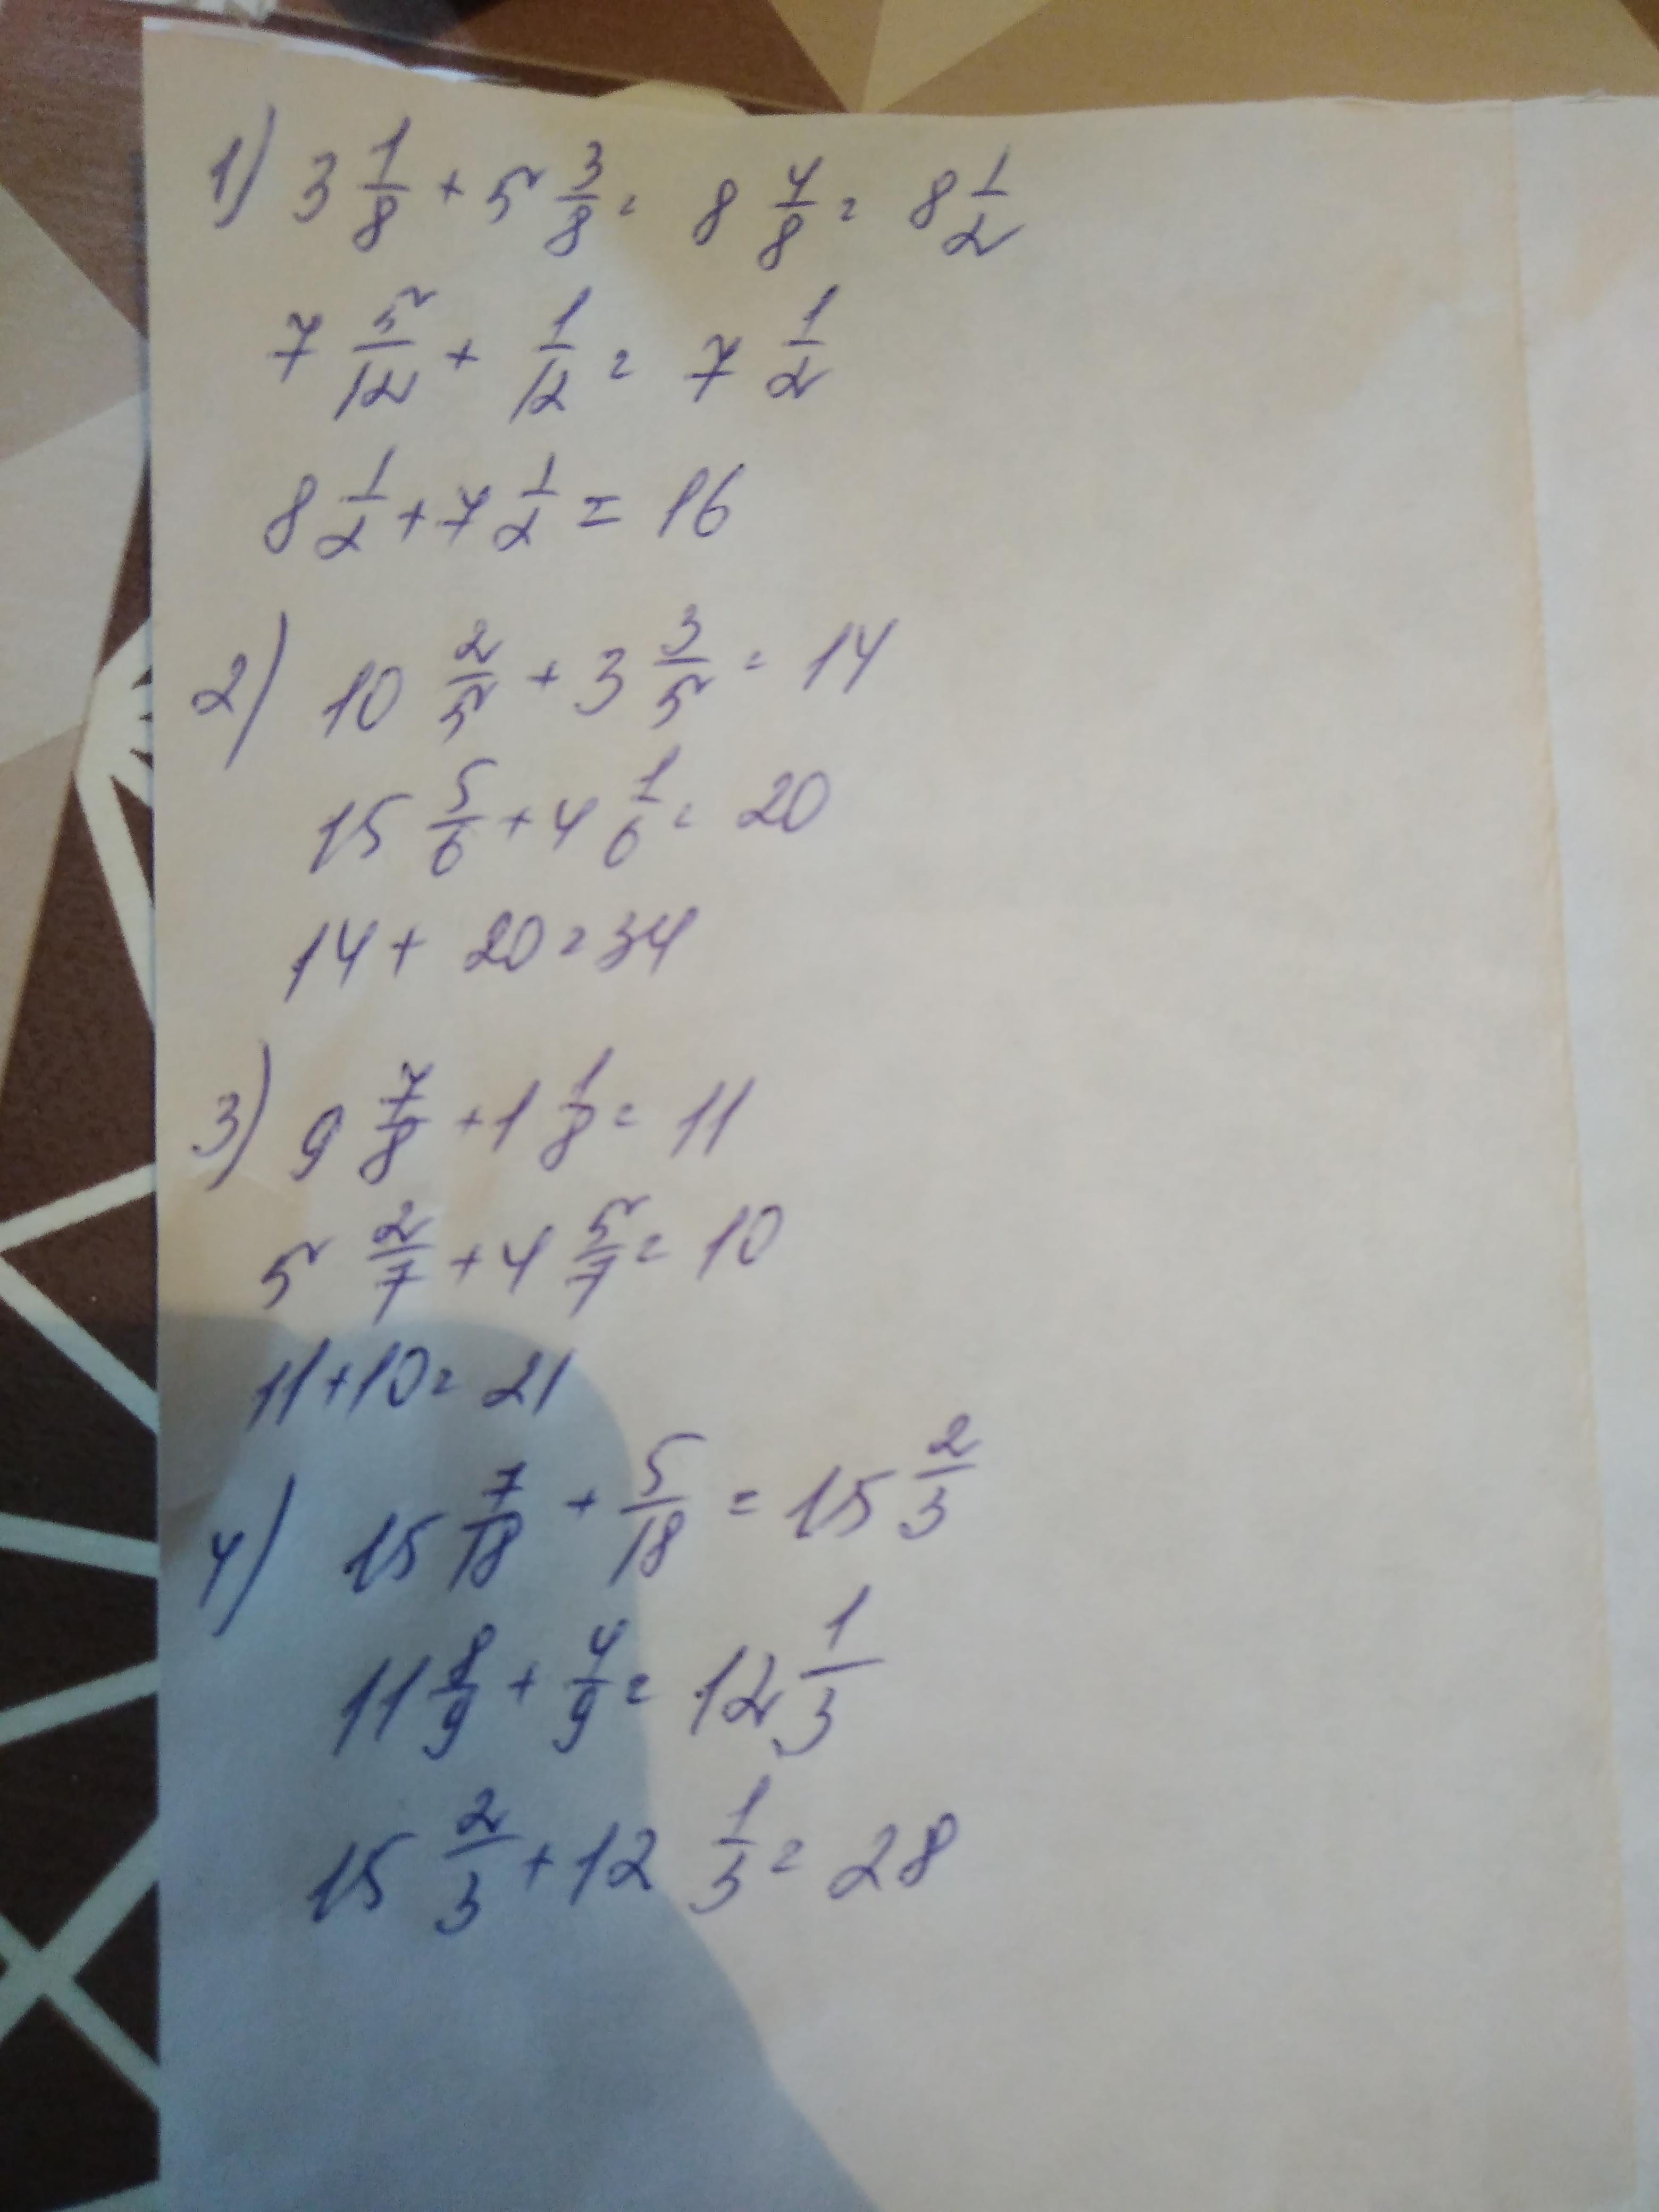 1) 3 1/8 + 5 3/8 = 8 4/8 = 8 1/2
7 5/12 + 1/12 = 7 1/2
8 1/2 + 7 1/2 = 16
2) 10 2/5 + 3 3/5 = 14
15 5/6 + 4 1/6 = 20
14 + 20 = 34
3) 9 7/8 + 1 1/8 = 11
5 2/7 + 4 5/7 = 10
11 + 10 = 21
4) 15 7/18 + 5/18 = 15 2/3
11 8/9 + 4/9 = 12 1/3
15 2/3 + 12 1/3 = 28